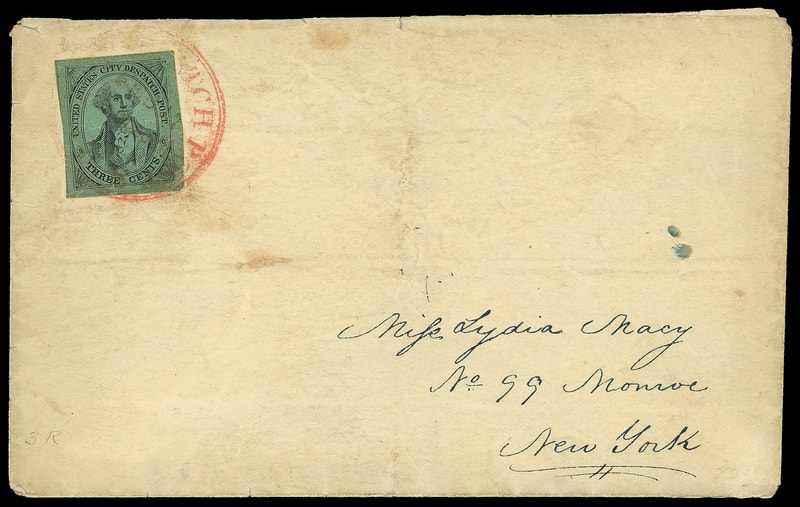 UNITED STATES CITY DESPATCH POST.
THREE CENTS.
CH P
Miſs Lydia Macy
No 99 Monroe
New York
3 R